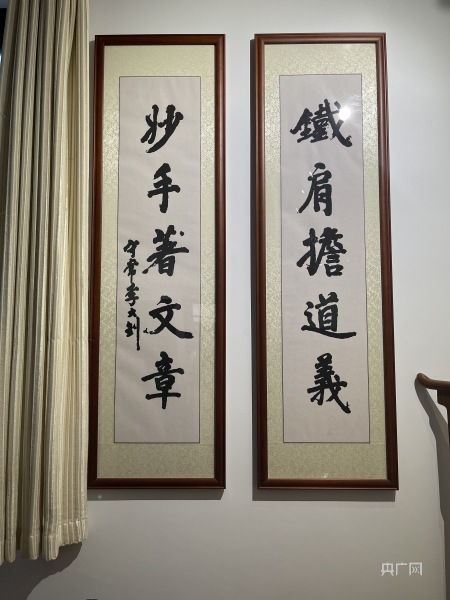 鐵肩擔道義
妙手著文章
守常李大釗
央广网